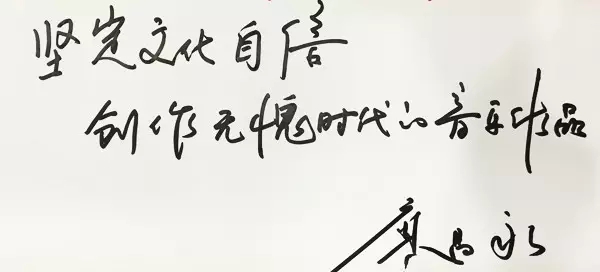 坚定文化自信
创作无愧时代的音乐作品
廖昌永